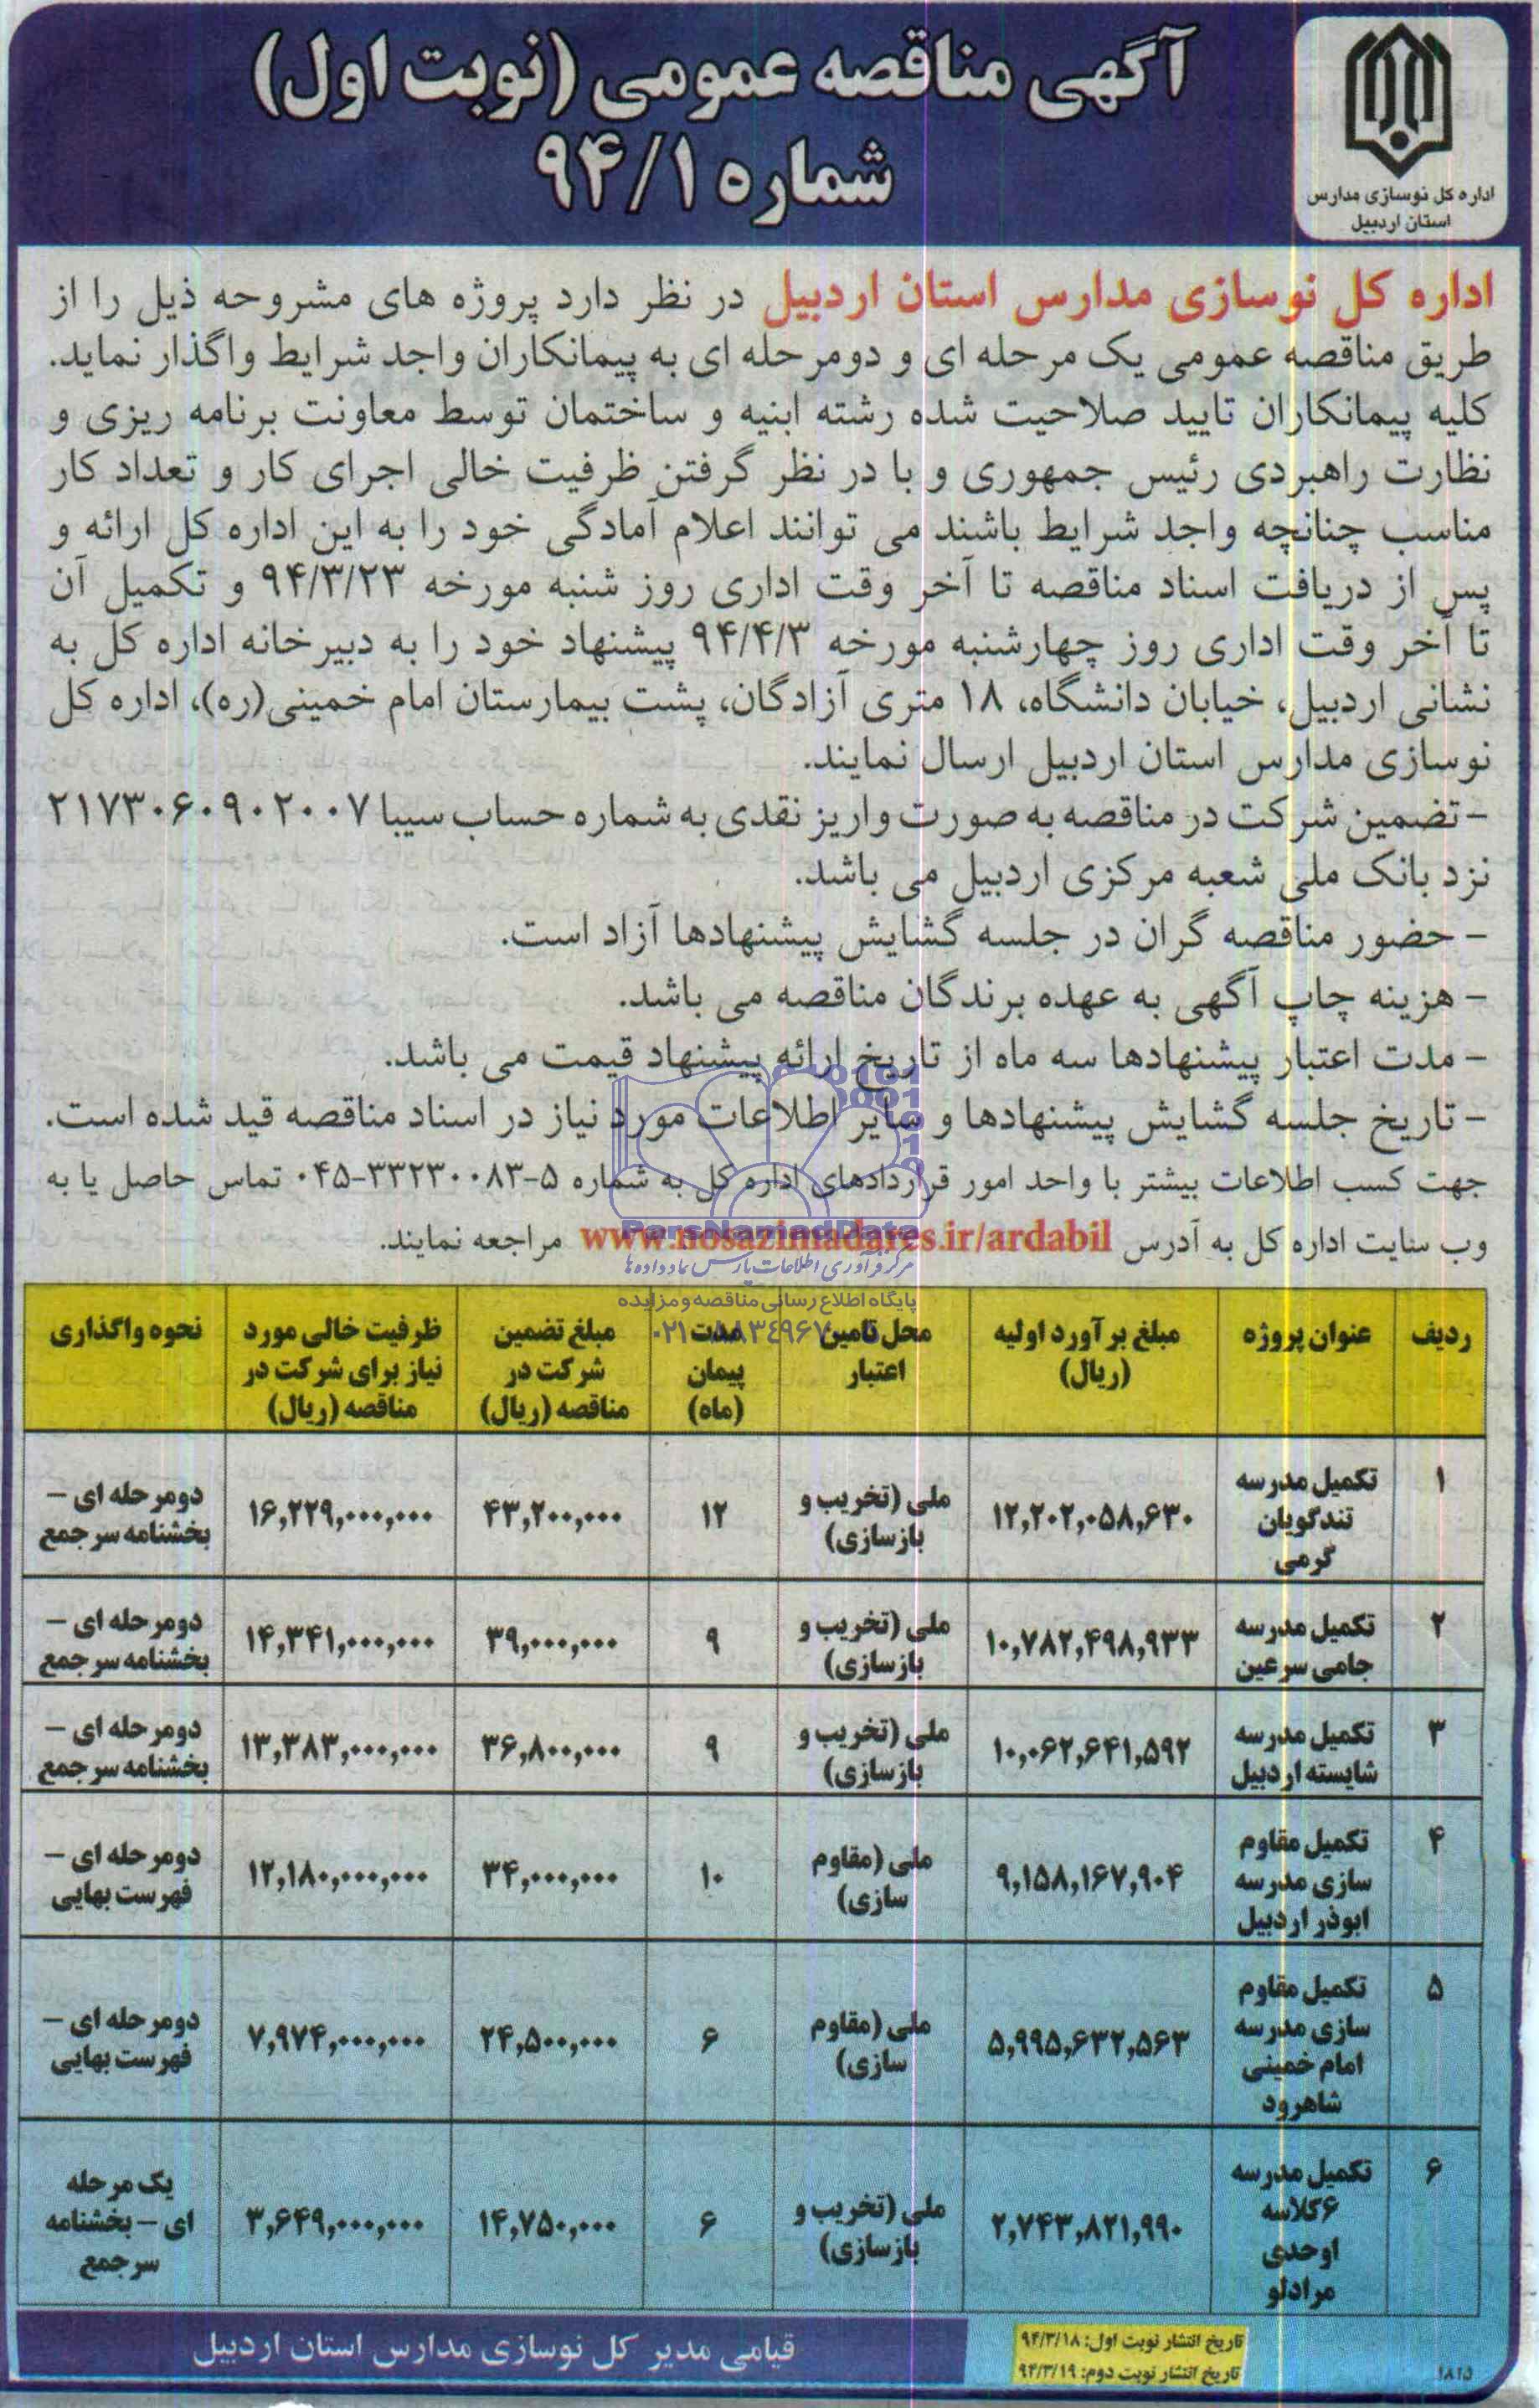 آگهی مناقصه عمومی (نوبت اول)
شماره ۹۴/۱
اداره کل نوسازی مدارس
استان اردبیل
اداره کل نوسازی مدارس استان اردبیل در نظر دارد پروژه های مشروحه ذیل را از
طریق مناقصه عمومی یک مرحله ای و دومرحله ای به پیمانکاران واجد شرایط واگذار نماید.
کلیه پیمانکاران تایید صلاحیت شده رشته ابنیه و ساختمان توسط معاونت برنامه ریزی و
نظارت راهبردی رئیس جمهوری و با در نظر گرفتن ظرفیت خالی اجرای کار و تعداد کار
مناسب چنانچه واجد شرایط باشند می توانند اعلام آمادگی خود را به این اداره کل ارائه و
پس از دریافت اسناد مناقصه تا آخر وقت اداری روز شنبه مورخه ۹۴/۳/۲۳ و تکمیل آن
تا آخر وقت اداری روز چهارشنبه مورخه ۹۴/۴/۳ پیشنهاد خود را به دبیرخانه اداره کل به
نشانی اردبیل، خیابان دانشگاه، ۱۸ متری آزادگان، پشت بیمارستان امام خمینی(ره)، اداره کل
نوسازی مدارس استان اردبیل ارسال نمایند.
- تضمین شرکت در مناقصه به صورت واریز نقدی به شماره حساب سیبا ۲۱۷۳۰۶۰۹۰۲۰۰۷
نزد بانک ملی شعبه مرکزی اردبیل می باشد.
- حضور مناقصه گران در جلسه گشایش پیشنهادها آزاد است.
- هزینه چاپ آگهی به عهده برندگان مناقصه می باشد.
- مدت اعتبار پیشنهادها سه ماه از تاریخ ارائه پیشنهاد قیمت می باشد.
- تاریخ جلسه گشایش پیشنهادها و سایر اطلاعات مورد نیاز در اسناد مناقصه قید شده است.
جهت کسب اطلاعات بیشتر با واحد امور قراردادهای اداره کل به شماره ۵-۳۳۲۳۰۰۸۳-۰۴۵ تماس حاصل یا به
وب سایت اداره کل به آدرس www.nosazimadares.ir/ardabil مراجعه نمایند.
ParsNamadData
مرکز فرآوری اطلاعات پارس نماد داده ها
پایگاه اطلاع رسانی مناقصه و مزایده
ردیف عنوان پروژه مبلغ برآورد اولیه (ریال) محل تامین اعتبار مدت پیمان (ماه) مبلغ تضمین شرکت در مناقصه (ریال) ظرفیت خالی مورد نیاز برای شرکت در مناقصه (ریال) نحوه واگذاری
۱ تکمیل مدرسه تندگویان گرمی ۱۲,۲۰۲,۰۵۸,۶۳۰ ملی (تخریب و بازسازی) ۱۲ ۴۳,۲۰۰,۰۰۰ ۱۶,۲۲۹,۰۰۰,۰۰۰ دومرحله ای - بخشنامه سرجمع
۲ تکمیل مدرسه جامی سرعین ۱۰,۷۸۲,۴۹۸,۹۳۳ ملی (تخریب و بازسازی) ۹ ۳۹,۰۰۰,۰۰۰ ۱۴,۳۴۱,۰۰۰,۰۰۰ دومرحله ای - بخشنامه سرجمع
۳ تکمیل مدرسه شایسته اردبیل ۱۰,۰۶۲,۶۴۱,۵۹۲ ملی (تخریب و بازسازی) ۹ ۳۶,۸۰۰,۰۰۰ ۱۳,۳۸۳,۰۰۰,۰۰۰ دومرحله ای - بخشنامه سرجمع
۴ تکمیل مقاوم سازی مدرسه ابوذر اردبیل ۹,۱۵۸,۱۶۷,۹۰۴ ملی (مقاوم سازی) ۱۰ ۳۴,۰۰۰,۰۰۰ ۱۲,۱۸۰,۰۰۰,۰۰۰ دومرحله ای - فهرست بهایی
۵ تکمیل مقاوم سازی مدرسه امام خمینی شاهرود ۵,۹۹۵,۶۳۲,۵۶۳ ملی (مقاوم سازی) ۶ ۲۴,۵۰۰,۰۰۰ ۷,۹۷۴,۰۰۰,۰۰۰ دومرحله ای - فهرست بهایی
۶ تکمیل مدرسه ۶کلاسه اوحدی مرادلو ۲,۷۴۳,۸۲۱,۹۹۰ ملی (تخریب و بازسازی) ۶ ۱۴,۷۵۰,۰۰۰ ۳,۶۴۹,۰۰۰,۰۰۰ یک مرحله ای - بخشنامه سرجمع
تاریخ انتشار نوبت اول: ۹۴/۳/۱۸
تاریخ انتشار نوبت دوم: ۹۴/۳/۱۹
قیامی مدیر کل نوسازی مدارس استان اردبیل
۱۸۱۵